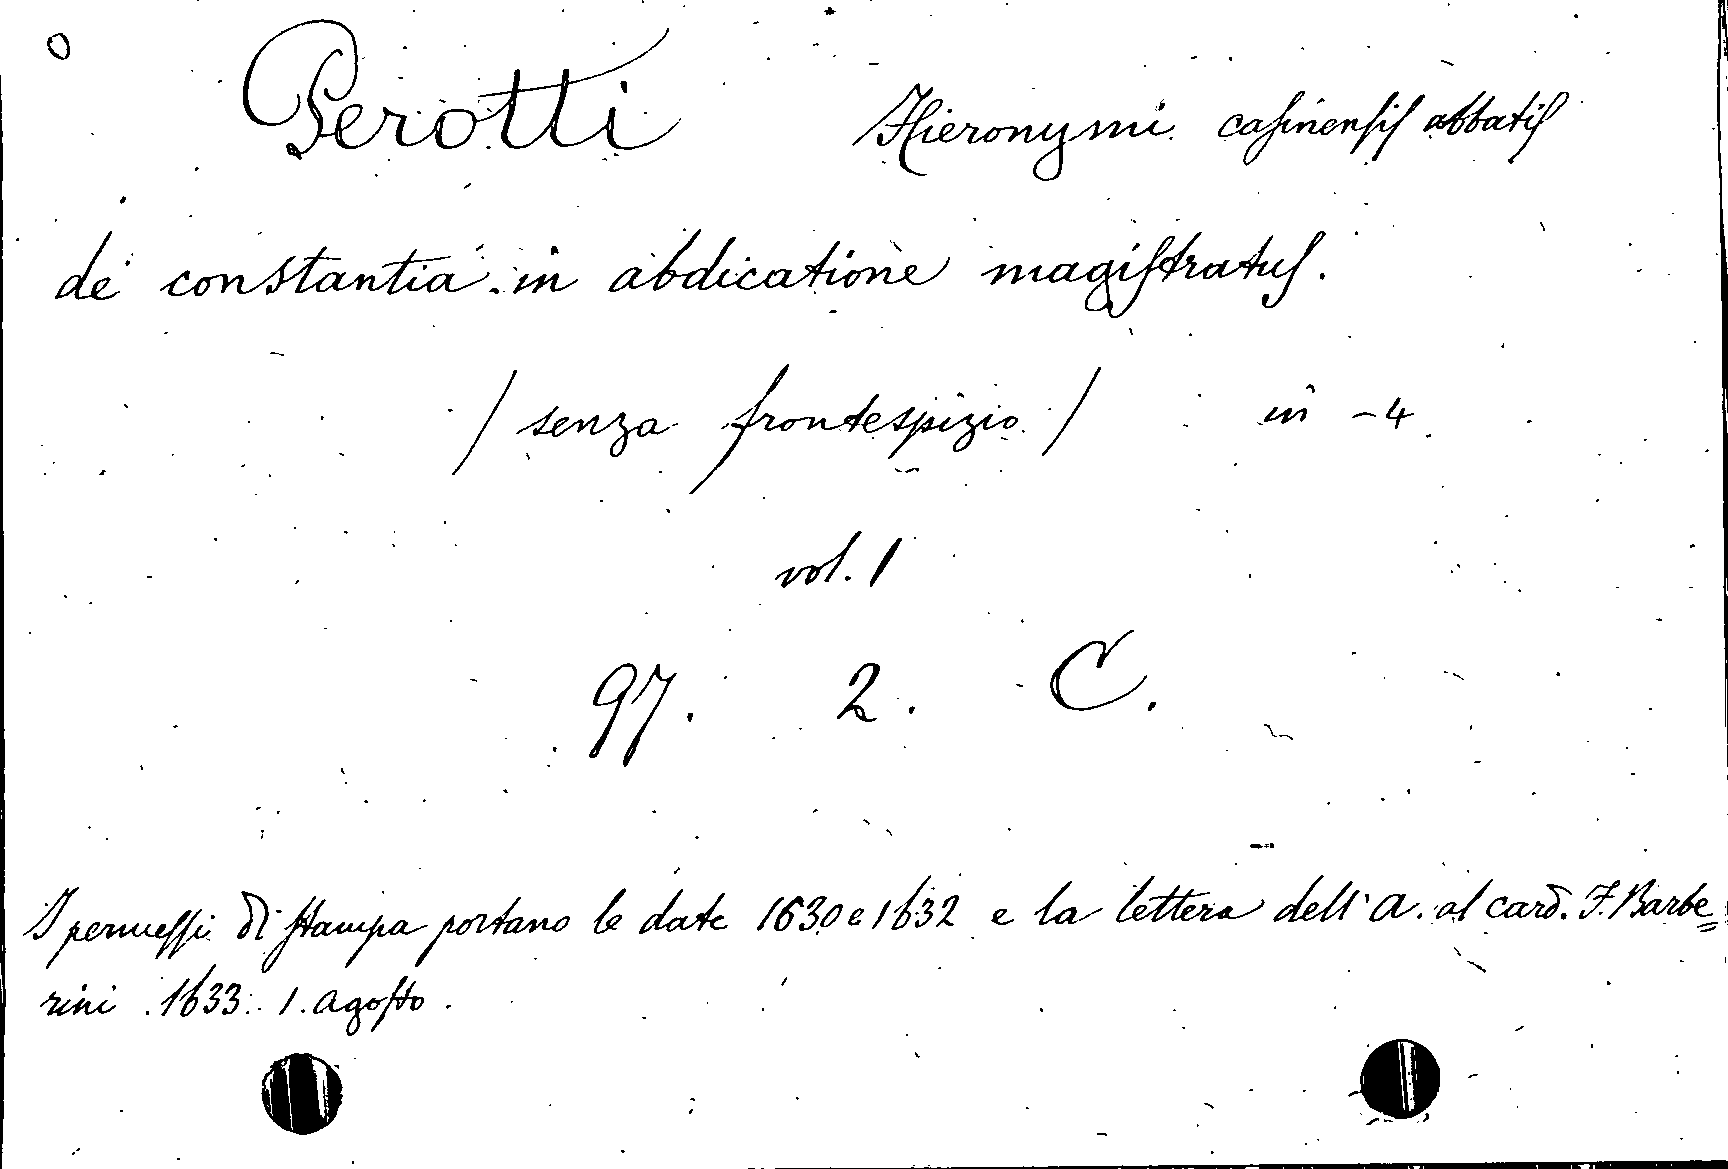 Perotti Hieronymi casinensis abbatis
de constantia in abdicatione magistratus.
/ senza frontespizio / in -4
vol. 1
97. 2. C.
I permessi di stampa portano le date 1630 e 1632 e la lettera dell' A. al card. F. Barbe=
rini 1633. 1. agosto.